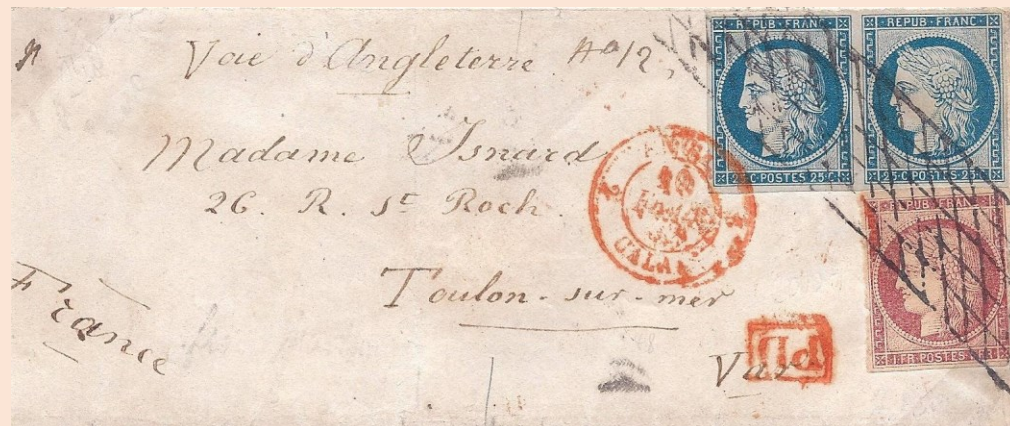 Voie d'Angleterre
Madame Isnard
26. R. St Roch.
Toulon-sur-mer
Var
France
REPUB FRANC
25 C POSTES 25 C
REPUB FRANC
25 C POSTES 25 C
REPUB FRANC
1 FR POSTES 1 FR
CALA
PD